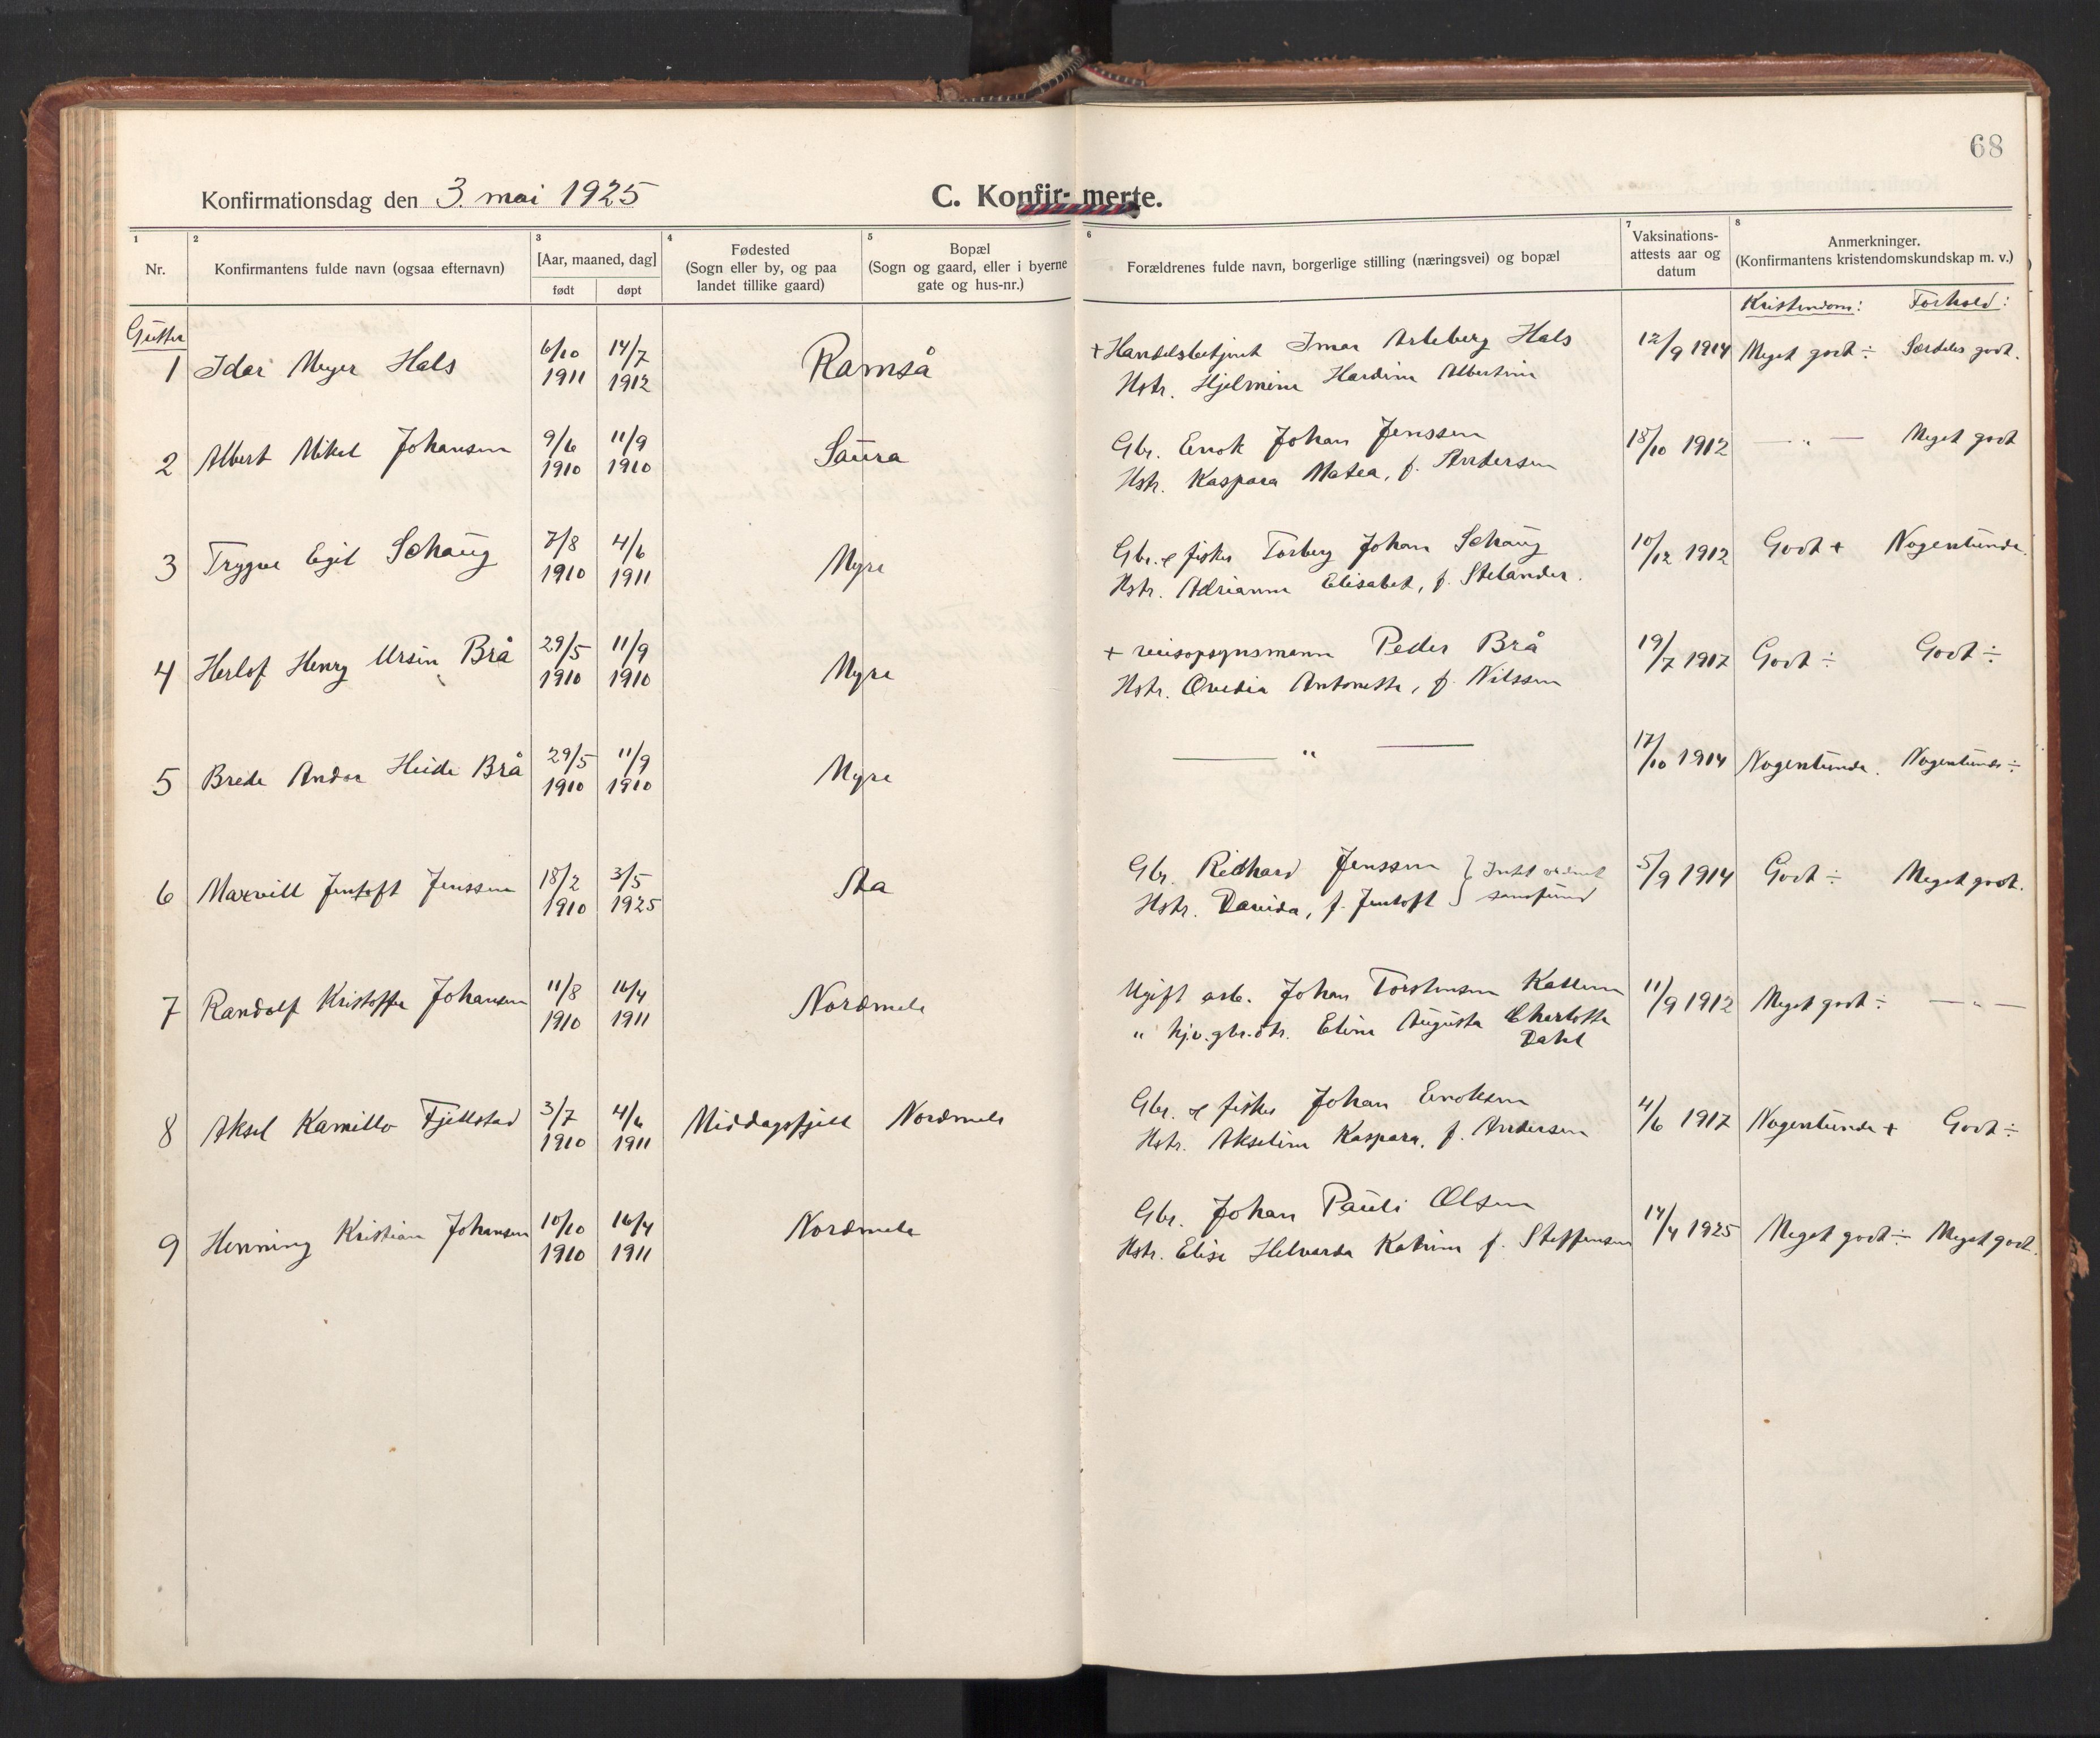 68
Konfirmationsdag den 3. mai 1925
C. Konfir- merte.
1 2 3 4 5 6 7 8
Nr.
Konfirmantens fulde navn (ogsaa efternavn)
[Aar, maaned, dag]
født døpt
Fødested
(Sogn eller by, og paa
landet tillike gaard)
Bopæl
(Sogn og gaard, eller i byerne
gate og hus-nr.)
Forældrenes fulde navn, borgerlige stilling (næringsvei) og bopæl
Vaksinations-
attests aar og
datum
Anmerkninger.
(Konfirmantens kristendomskundskap m. v.)
Kristendom: Forhold:
Gutter
1 Idar Meyer Hals 6/10 1911 14/7 1912 Ramså
+ Handelsbetjent Imar Arleberg Hals
Hstr. Hjelmine Hardine Albertine
12/9 1914 Meget godt ÷ Særdeles godt.
2 Albert Mikal Johansen 9/6 1910 11/9 1910 Saura
Gbr. Enok Johan Jenssen
Hstr. Kaspara Matea, f. Andersen
18/10 1912 — „ — Meget godt
3 Trygve Egil Schaug 7/8 1910 4/6 1911 Myre
Gbr. & fisker Torberg Johan Schaug
Hstr. Adrianna Elisabet, f. Stelander.
10/12 1912 Godt + Nogenlunde.
4 Herlof Henry Ursin Brå 29/5 1910 11/9 1910 Myre
+ veiopsynsmann Peder Brå
Hstr. Ovedia Antonette, f. Nilssen
19/7 1917 Godt ÷ Godt ÷
5 Brede Andor Heide Brå 29/5 1910 11/9 1910 Myre
— „ —
17/10 1914 Nogenlunde. Nogenlunde ÷
6 Maxvill Jentoft Jenssen 18/2 1910 3/5 1925 Aa
Gbr. Richard Jenssen } Intet ordnet
Hstr. Davida, f. Jentoft } samfund
5/9 1914 Godt ÷ Meget godt.
7 Randolf Kristoffer Johansen 11/8 1910 16/4 1911 Nordmela
Ugift arb. Johan Torstensen
„ hj.v. gbr.dtr. Eline Augusta Charlotte
Dahl
11/9 1912 Meget godt ÷ — „ —
8 Aksel Kamillo Fjellstad 3/7 1910 4/6 1911 Middagsfjell Nordmela
Gbr. & fisker Johan Enoksen
Hstr. Akseline Kaspara, f. Andersen
4/6 1917 Nogenlunde + Godt ÷
9 Henning Kristian Johansen 10/10 1910 16/4 1911 Nordmela
Gbr. Johan Pauli Olsen
Hstr. Elise Helvarda Katrine f. Steffensen
14/4 1925 Meget godt ÷ Meget godt.